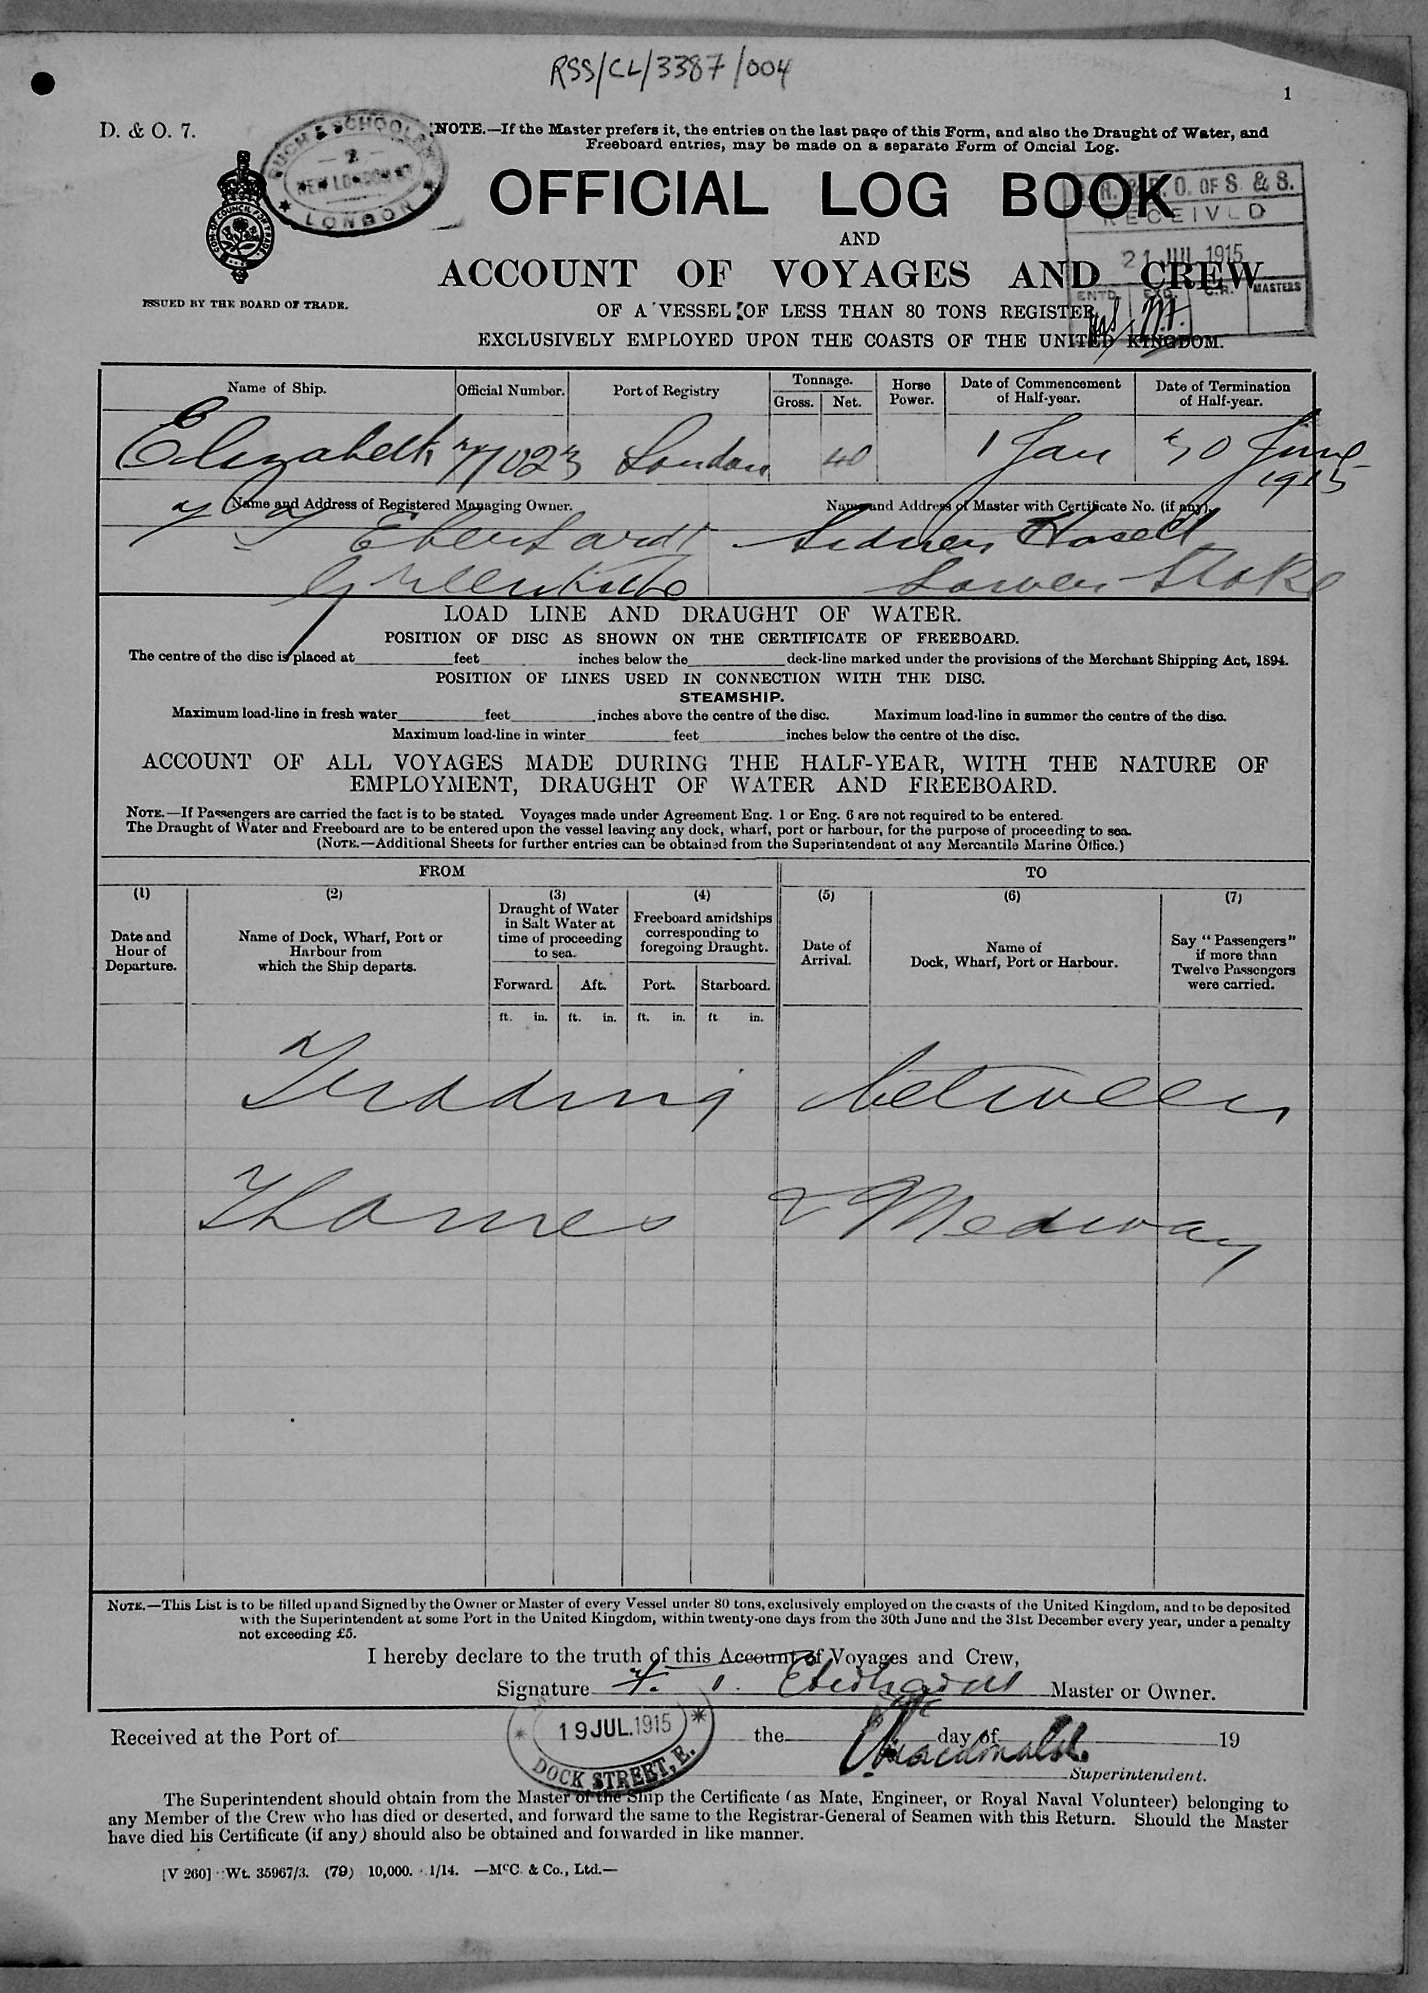 RSS/CL/3387/004
1
D. & O. 7.
NOTE.—If the Master prefers it, the entries on the last page of this Form, and also the Draught of Water, and
Freeboard entries, may be made on a separate Form of Official Log.
NEW LONDON RD
LONDON
OFFICIAL LOG BOOK
R. O. OF S. & S.
RECEIVED
21 JUL 1915
ENTD. EXD. C.R. MASTERS
AND
ACCOUNT OF VOYAGES AND CREW
ISSUED BY THE BOARD OF TRADE.
OF A VESSEL OF LESS THAN 80 TONS REGISTER
EXCLUSIVELY EMPLOYED UPON THE COASTS OF THE UNITED KINGDOM.
Name of Ship. Official Number. Port of Registry Tonnage. Gross. Net. Horse Power. Date of Commencement of Half-year. Date of Termination of Half-year.
Elizabeth 77023 London 40 1 Jan 30 June
1915
Name and Address of Registered Managing Owner. Name and Address of Master with Certificate No. (if any).
Eberhardt Sidney
Greenhithe Lower Stoke
LOAD LINE AND DRAUGHT OF WATER.
POSITION OF DISC AS SHOWN ON THE CERTIFICATE OF FREEBOARD.
The centre of the disc is placed at feet inches below the deck-line marked under the provisions of the Merchant Shipping Act, 1894.
POSITION OF LINES USED IN CONNECTION WITH THE DISC.
STEAMSHIP.
Maximum load-line in fresh water feet inches above the centre of the disc. Maximum load-line in summer the centre of the disc.
Maximum load-line in winter feet inches below the centre of the disc.
ACCOUNT OF ALL VOYAGES MADE DURING THE HALF-YEAR, WITH THE NATURE OF
EMPLOYMENT, DRAUGHT OF WATER AND FREEBOARD.
NOTE.—If Passengers are carried the fact is to be stated. Voyages made under Agreement Eng. 1 or Eng. 6 are not required to be entered.
The Draught of Water and Freeboard are to be entered upon the vessel leaving any dock, wharf, port or harbour, for the purpose of proceeding to sea.
(NOTE.—Additional Sheets for further entries can be obtained from the Superintendent of any Mercantile Marine Office.)
FROM TO
(1) (2) (3) (4) (5) (6) (7)
Date and Hour of Departure.
Name of Dock, Wharf, Port or Harbour from which the Ship departs.
Draught of Water in Salt Water at time of proceeding to sea.
Freeboard amidships corresponding to foregoing Draught.
Date of Arrival.
Name of Dock, Wharf, Port or Harbour.
Say "Passengers" if more than Twelve Passengers were carried.
Forward. Aft. Port. Starboard.
ft. in. ft. in. ft. in. ft in.
Trading between
Thames & Medway
NOTE.—This List is to be filled up and Signed by the Owner or Master of every Vessel under 80 tons, exclusively employed on the coasts of the United Kingdom, and to be deposited
with the Superintendent at some Port in the United Kingdom, within twenty-one days from the 30th June and the 31st December every year, under a penalty
not exceeding £5.
I hereby declare to the truth of this Account of Voyages and Crew,
Signature Eberhardt Master or Owner.
Received at the Port of the day of 19
19 JUL. 1915
DOCK STREET, E.
Macdonald.
Superintendent.
The Superintendent should obtain from the Master of the Ship the Certificate (as Mate, Engineer, or Royal Naval Volunteer) belonging to
any Member of the Crew who has died or deserted, and forward the same to the Registrar-General of Seamen with this Return. Should the Master
have died his Certificate (if any) should also be obtained and forwarded in like manner.
[V 260] Wt. 35967/3. (79) 10,000. 1/14. —McC. & Co., Ltd.—